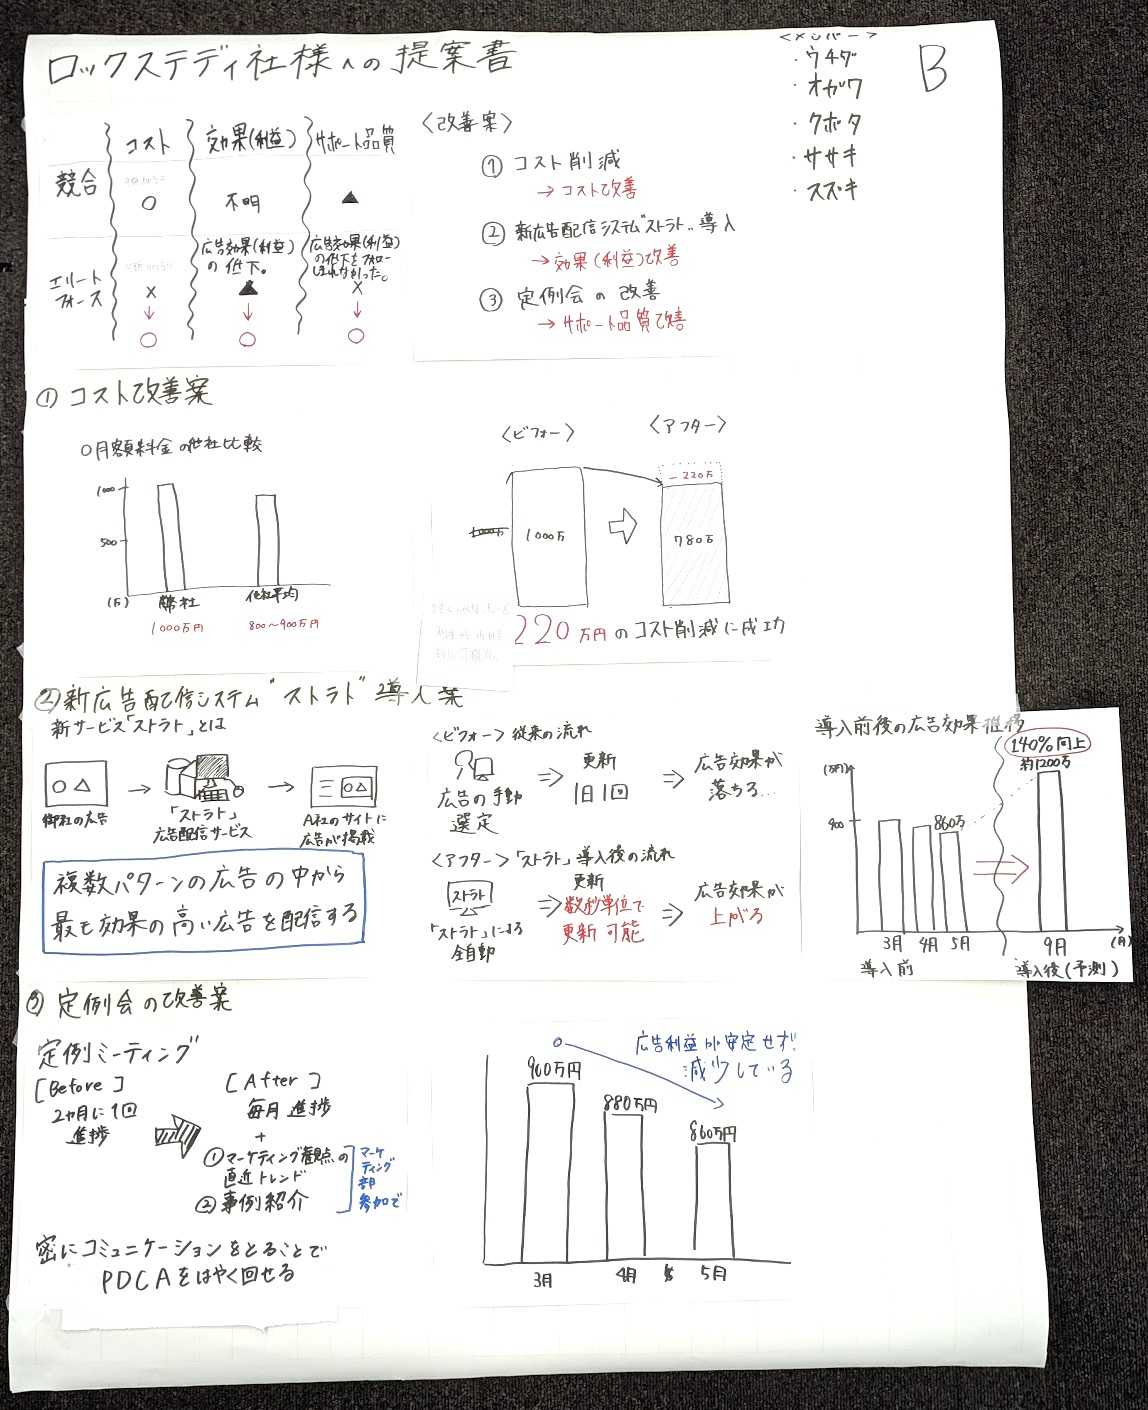 ロックステディ社様への提案書
<メンバー>
・ウチダ
・オガワ
・クボタ
・ササキ
・スズキ
B
コスト
効果(利益)
サポート品質
競合
○
不明
▲
エリートフォース
×
↓
○
広告効果(利益)
の低下。
▲
↓
○
広告効果(利益)
の低下をフォロー
しきれなかった。
×
↓
○
<改善案>
① コスト削減
→コスト改善
② 新広告配信システム"ストラト"導入
→効果(利益)改善
③ 定例会の改善
→サポート品質改善
① コスト改善案
○月額料金の他社比較
1000
500
(万)
弊社
他社平均
1000万円
800~900万円
<ビフォー>
<アフター>
1000万
-220万
780万
220万円のコスト削減に成功
②新広告配信システム"ストラト"導入案
新サービス「ストラト」とは
○△
→
→
○△
御社の広告
「ストラト」
広告配信サービス
A社のサイトに
広告が掲載
複数パターンの広告の中から
最も効果の高い広告を配信する
<ビフォー>従来の流れ
広告の手動
選定
⇒
更新
1日1回
⇒
広告効果が
落ちる…
<アフター>「ストラト」導入後の流れ
ストラト
「ストラト」による
全自動
⇒
更新
数秒単位で
更新可能
⇒
広告効果が
上がる
導入前後の広告効果推移
140%向上
約1200万
(万円)
900
860万
3月
4月
5月
9月
(月)
導入前
導入後(予測)
③ 定例会の改善案
定例ミーティング
[Before]
2ヵ月に1回
進捗
[After]
毎月進捗
+
①マーケティング観点の
直近トレンド
②事例紹介
マーケ
ティング
部
参加で
密にコミュニケーションをとることで
PDCAをはやく回せる
広告利益が安定せず!
減少している
900万円
880万円
860万円
3月
4月
5月